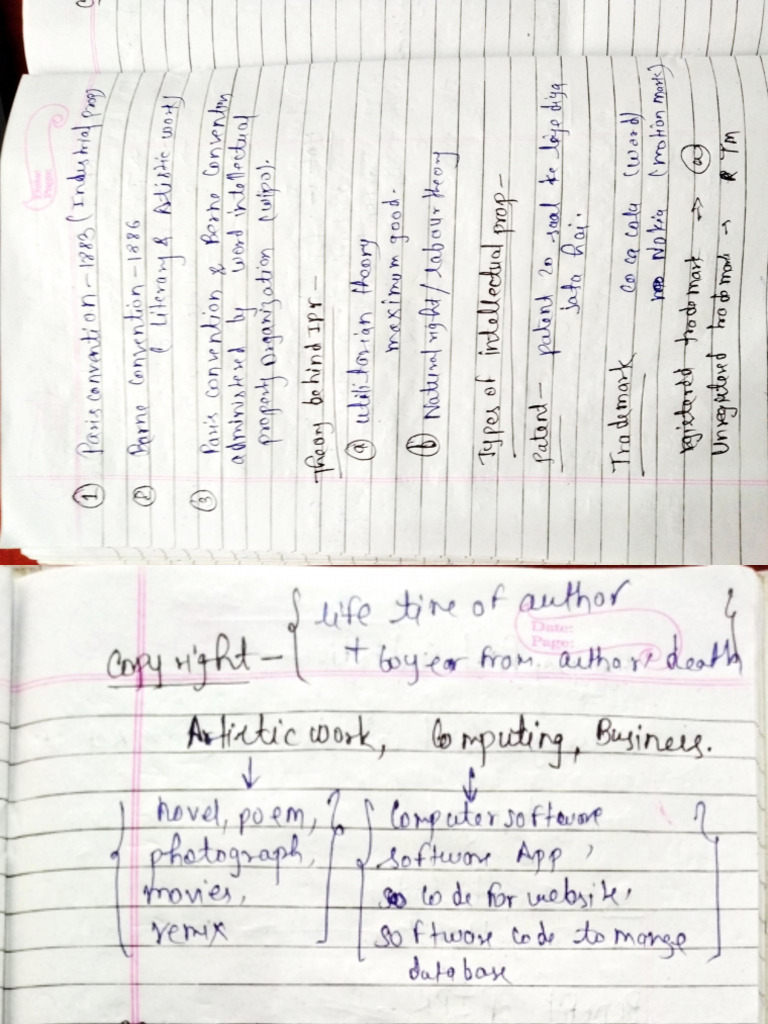 ① Paris convention - 1883 (Industrial prop)
② Berne Convention - 1886
( Literary & Artistic work)
③ Paris convention & Berne Convention
administered by word intellectual
property Organization (wipo).
Theory behind IPR -
ⓐ utilitarian theory
maximum good.
ⓑ Natural right / labour theory
Types of intellectual prop -
patent - patent 20 saal ke liye diya
jata hai.
Trademark coca cola (word)
Nokia (motion mark)
registered trademark →
Unregistered trademark → TM
Copyright - { life time of author }
+ 60 year from author death
Date:
Page:
Artistic work, Computing, Business.
↓ ↓
{ novel, poem, } { Computer software }
photograph, software App,
movies, code for website,
remix software code to mange
database